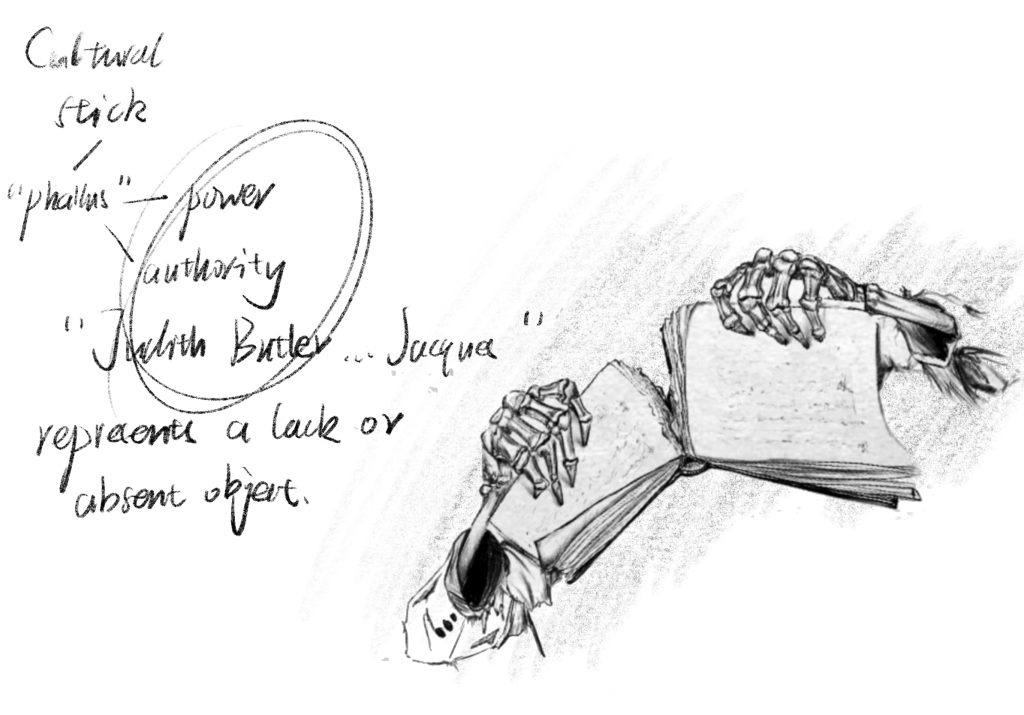 Cultural
stick
"phallus" — power
authority
"Judith Butler ... Jacques"
represents a lack or
absent object.